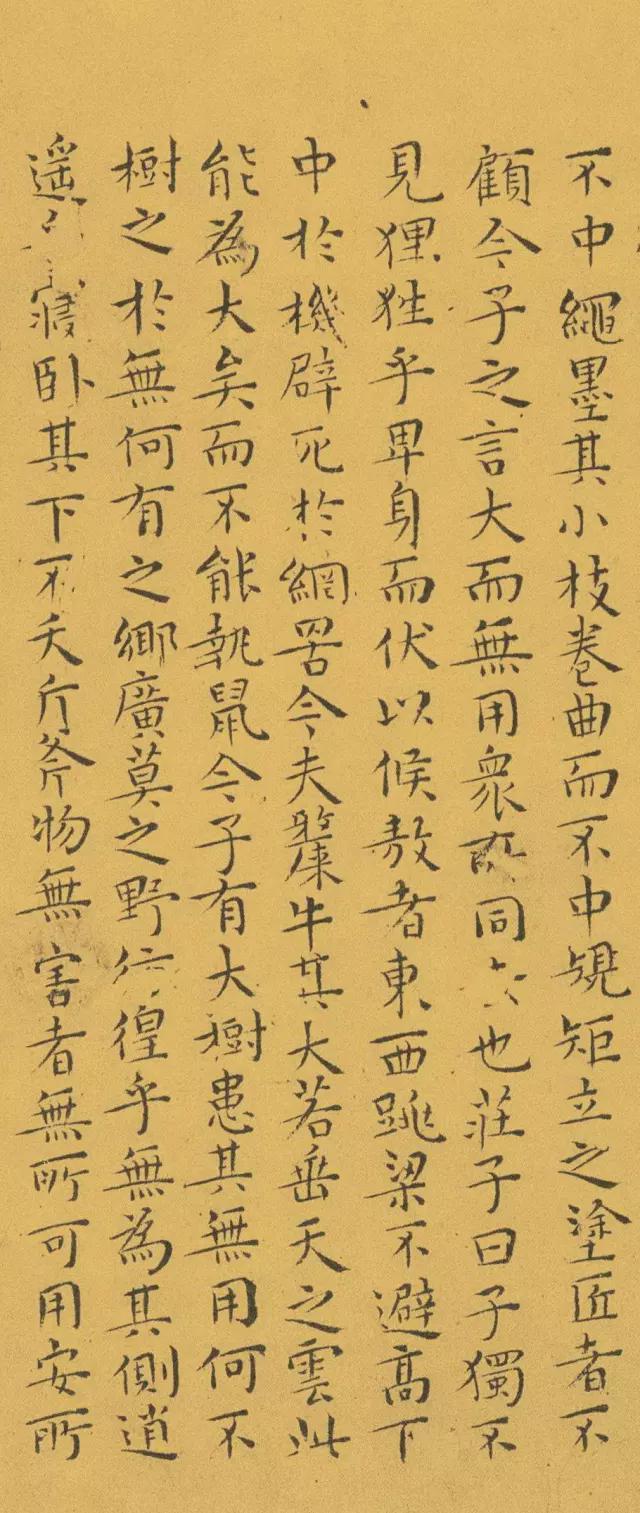 不中繩墨其小枝卷曲而不中規矩立之塗匠者不
顧今子之言大而無用衆所同也莊子曰子獨不
見狸狌乎卑身而伏以候敖者東西跳梁不避高下
中於機辟死於網罟今夫斄牛其大若垂天之雲此
能為大矣而不能執鼠今子有大樹患其無用何不
樹之於無何有之鄉廣莫之野彷徨乎無為其側逍
遥寢卧其下不夭斤斧物無害者無所可用安所